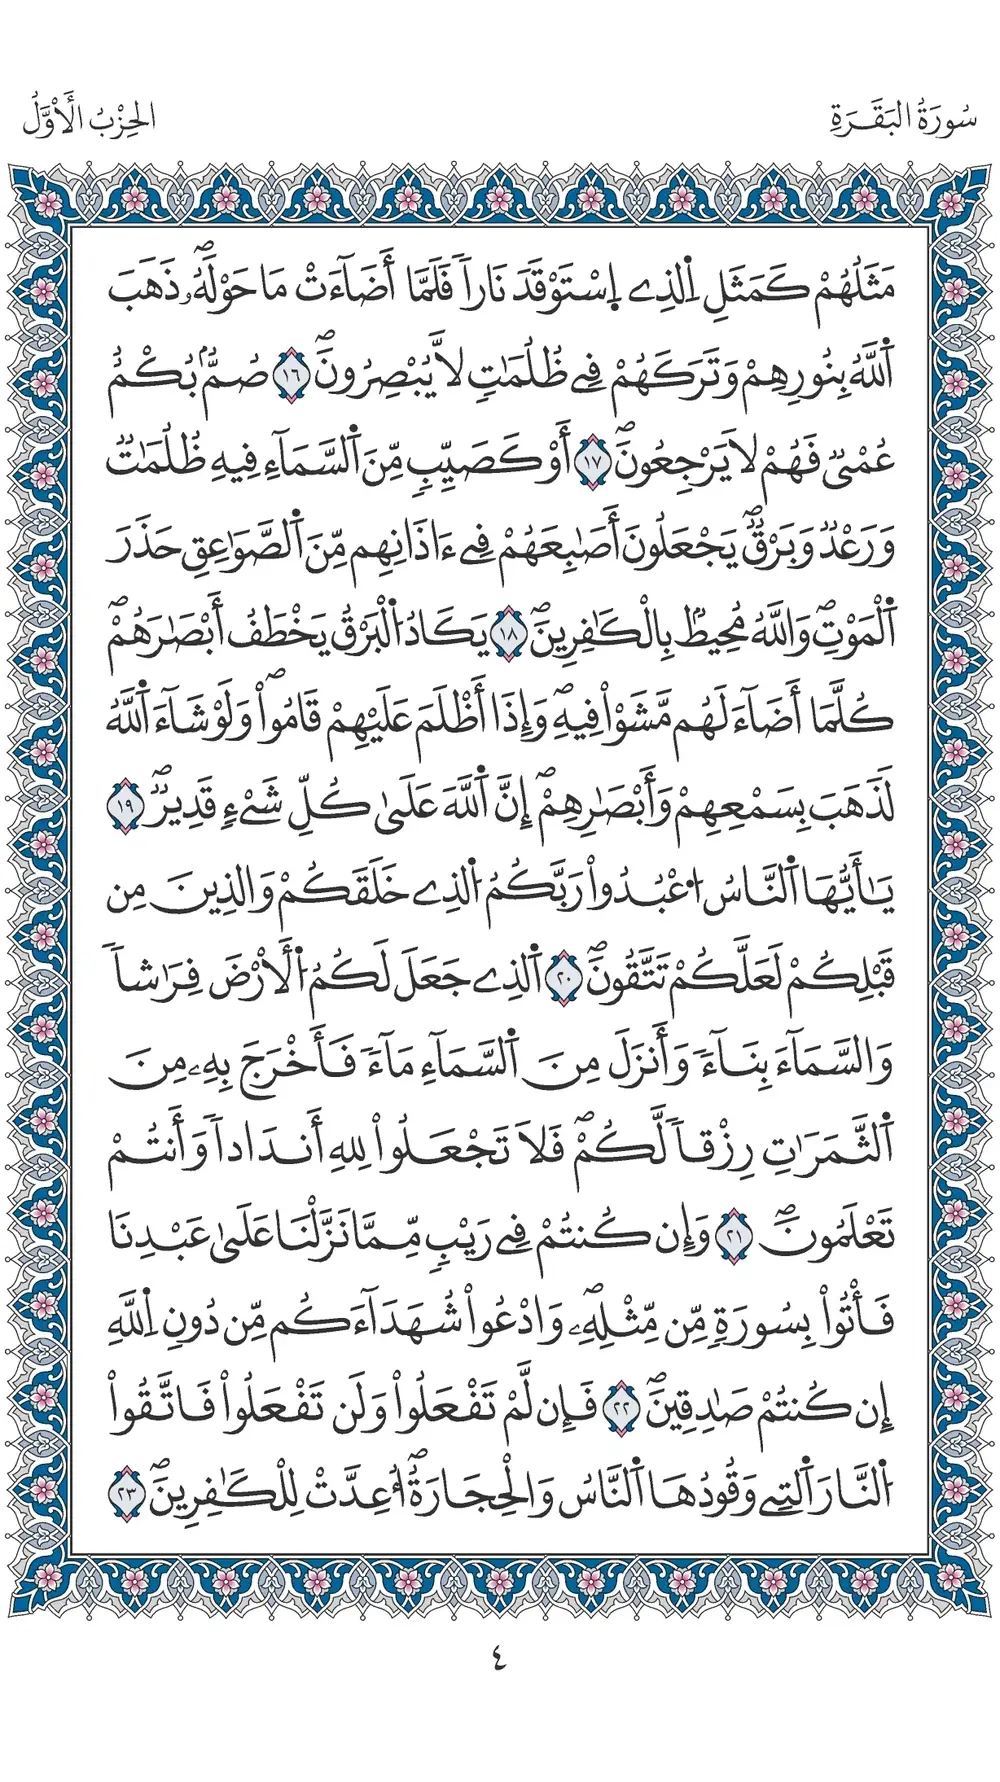 سُورَةُ البَقَرَةِ
الحِزْبُ الأَوَّلُ
مَثَلُهُمْ كَمَثَلِ اِ۬لذِے اِ۪سْتَوْقَدَ نَاراٗ فَلَمَّا أَضَآءَتْ مَا حَوْلَهُۥۖ ذَهَبَ
اَ۬للَّهُ بِنُورِهِمْ وَتَرَكَهُمْ فِے ظُلُمَٰتٖ لَّا يُبْصِرُونَۖ ١٦ صُمُّۢ بُكْمٌ
عُمْيٞ فَهُمْ لَا يَرْجِعُونَۖ ١٧ أَوْ كَصَيِّبٖ مِّنَ اَ۬لسَّمَآءِ فِيهِ ظُلُمَٰتٞ
وَرَعْدٞ وَبَرْقٞۖ يَجْعَلُونَ أَصَٰبِعَهُمْ فِےٓ ءَاذَانِهِم مِّنَ اَ۬لصَّوَٰعِقِ حَذَرَ
اَ۬لْمَوْتِۖ وَاللَّهُ مُحِيطُۢ بِالْكَٰفِرِينَۖ ١٨ يَكَادُ اُ۬لْبَرْقُ يَخْطَفُ أَبْصَٰرَهُمْۖ
كُلَّمَآ أَضَآءَ لَهُم مَّشَوْاْ فِيهِۖ وَإِذَآ أَظْلَمَ عَلَيْهِمْ قَامُواْۖ وَلَوْ شَآءَ اَ۬للَّهُ
لَذَهَبَ بِسَمْعِهِمْ وَأَبْصَٰرِهِمْۖ إِنَّ اَ۬للَّهَ عَلَىٰ كُلِّ شَےْءٖ قَدِيرٞۖ ١٩
يَٰٓأَيُّهَا اَ۬لنَّاسُ اُ۟عْبُدُواْ رَبَّكُمُ اُ۬لذِے خَلَقَكُمْ وَالذِينَ مِن
قَبْلِكُمْ لَعَلَّكُمْ تَتَّقُونَۖ ٢٠ اَ۬لذِے جَعَلَ لَكُمُ اُ۬لْأَرْضَ فِرَٰشاٗ
وَالسَّمَآءَ بِنَآءٗ وَأَنزَلَ مِنَ اَ۬لسَّمَآءِ مَآءٗ فَأَخْرَجَ بِهِۦ مِنَ
اَ۬لثَّمَرَٰتِ رِزْقاٗ لَّكُمْۖ فَلَا تَجْعَلُواْ لِلهِ أَندَاداٗ وَأَنتُمْ
تَعْلَمُونَۖ ٢١ وَإِن كُنتُمْ فِے رَيْبٖ مِّمَّا نَزَّلْنَا عَلَىٰ عَبْدِنَا
فَأْتُواْ بِسُورَةٖ مِّن مِّثْلِهِۦۖ وَادْعُواْ شُهَدَآءَكُم مِّن دُونِ اِ۬للَّهِ
إِن كُنتُمْ صَٰدِقِينَۖ ٢٢ فَإِن لَّمْ تَفْعَلُواْ وَلَن تَفْعَلُواْ فَاتَّقُواْ
اُ۬لنَّارَ اَ۬لتِے وَقُودُهَا اَ۬لنَّاسُ وَالْحِجَارَةُۖ أُعِدَّتْ لِلْكَٰفِرِينَۖ ٢٣
٤